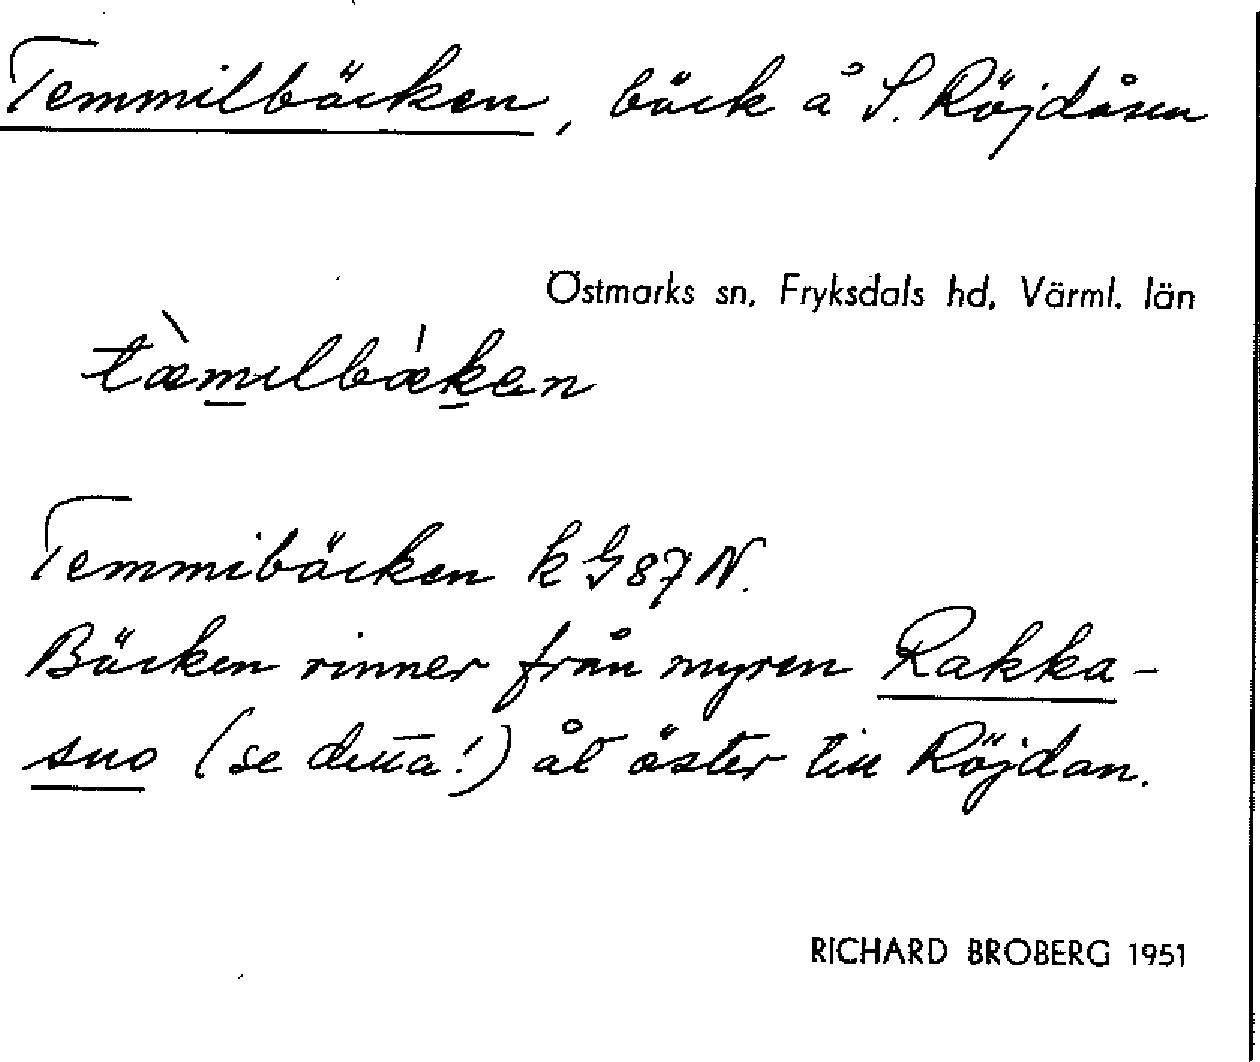 Temmilbäcken, bäck å S. Röjdåsen
Östmarks sn, Fryksdals hd, Värml. län
tæ̀mılbǽken
Temmibäcken k G 87 N.
Bäcken rinner från myren Rakka-
suo (se detta!) åt öster till Röjdan.
RICHARD BROBERG 1951